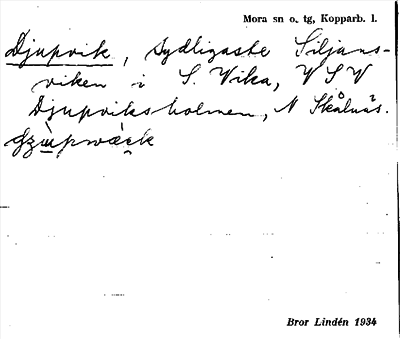 Mora sn o. tg, Kopparb. l.
Djupvik, sydligaste Siljans-
viken i S. Vika, VSV
Djupviksholmen, N Skålnäs.
Bror Lindén 1934